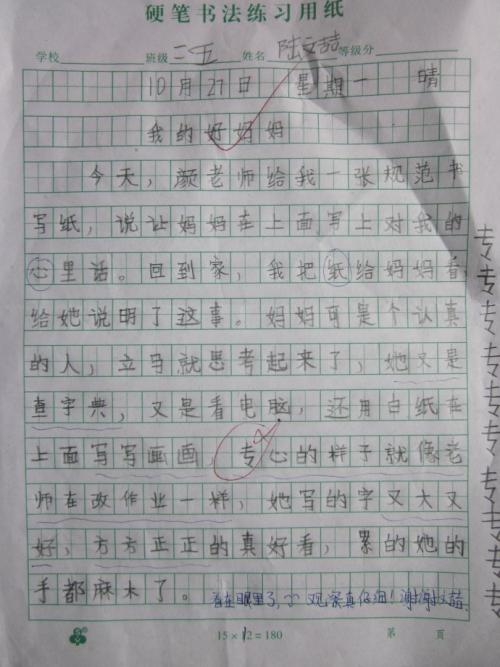 硬笔书法练习用纸
学校 班级 二五 姓名 陆文喆 等级分
10月27日 星期一 晴
我的好妈妈
今天，颜老师给我一张规范书
写纸，说让妈妈在上面写上对我的
心里话。回到家，我把纸给妈妈看，
给她说明了这事。妈妈可是个认真
的人，立马就思考起来了，她又是
查字典，又是看电脑，还用白纸在
上面写写画画，专心的样子就像老
师在改作业一样，她写的字又大又
好，方方正正的真好看，累的她的
手都麻木了。
看在眼里了，观察真仔细！谢谢文喆
15×12=180 第 页
专专专专专专专专